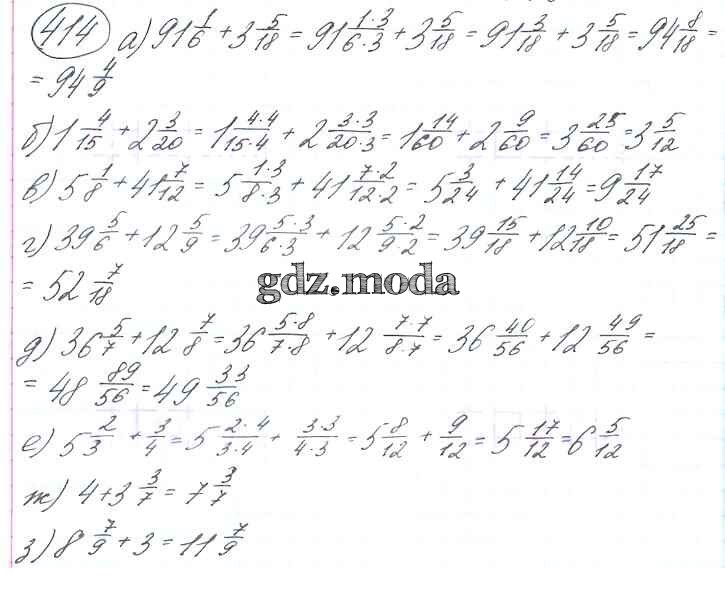 414 а) 91 1/6 + 3 5/18 = 91 1·3/6·3 + 3 5/18 = 91 3/18 + 3 5/18 = 94 8/18 =
= 94 4/9
б) 1 4/15 + 2 3/20 = 1 4·4/15·4 + 2 3·3/20·3 = 1 14/60 + 2 9/60 = 3 25/60 = 3 5/12
в) 5 1/8 + 41 7/12 = 5 1·3/8·3 + 41 7·2/12·2 = 5 3/24 + 41 14/24 = 9 17/24
г) 39 5/6 + 12 5/9 = 39 5·3/6·3 + 12 5·2/9·2 = 39 15/18 + 12 10/18 = 51 25/18 =
= 52 7/18
gdz.moda
д) 36 5/7 + 12 7/8 = 36 5·8/7·8 + 12 7·7/8·7 = 36 40/56 + 12 49/56 =
= 48 89/56 = 49 33/56
е) 5 2/3 + 3/4 = 5 2·4/3·4 + 3·3/4·3 = 5 8/12 + 9/12 = 5 17/12 = 6 5/12
ж) 4 + 3 3/7 = 7 3/7
з) 8 7/9 + 3 = 11 7/9